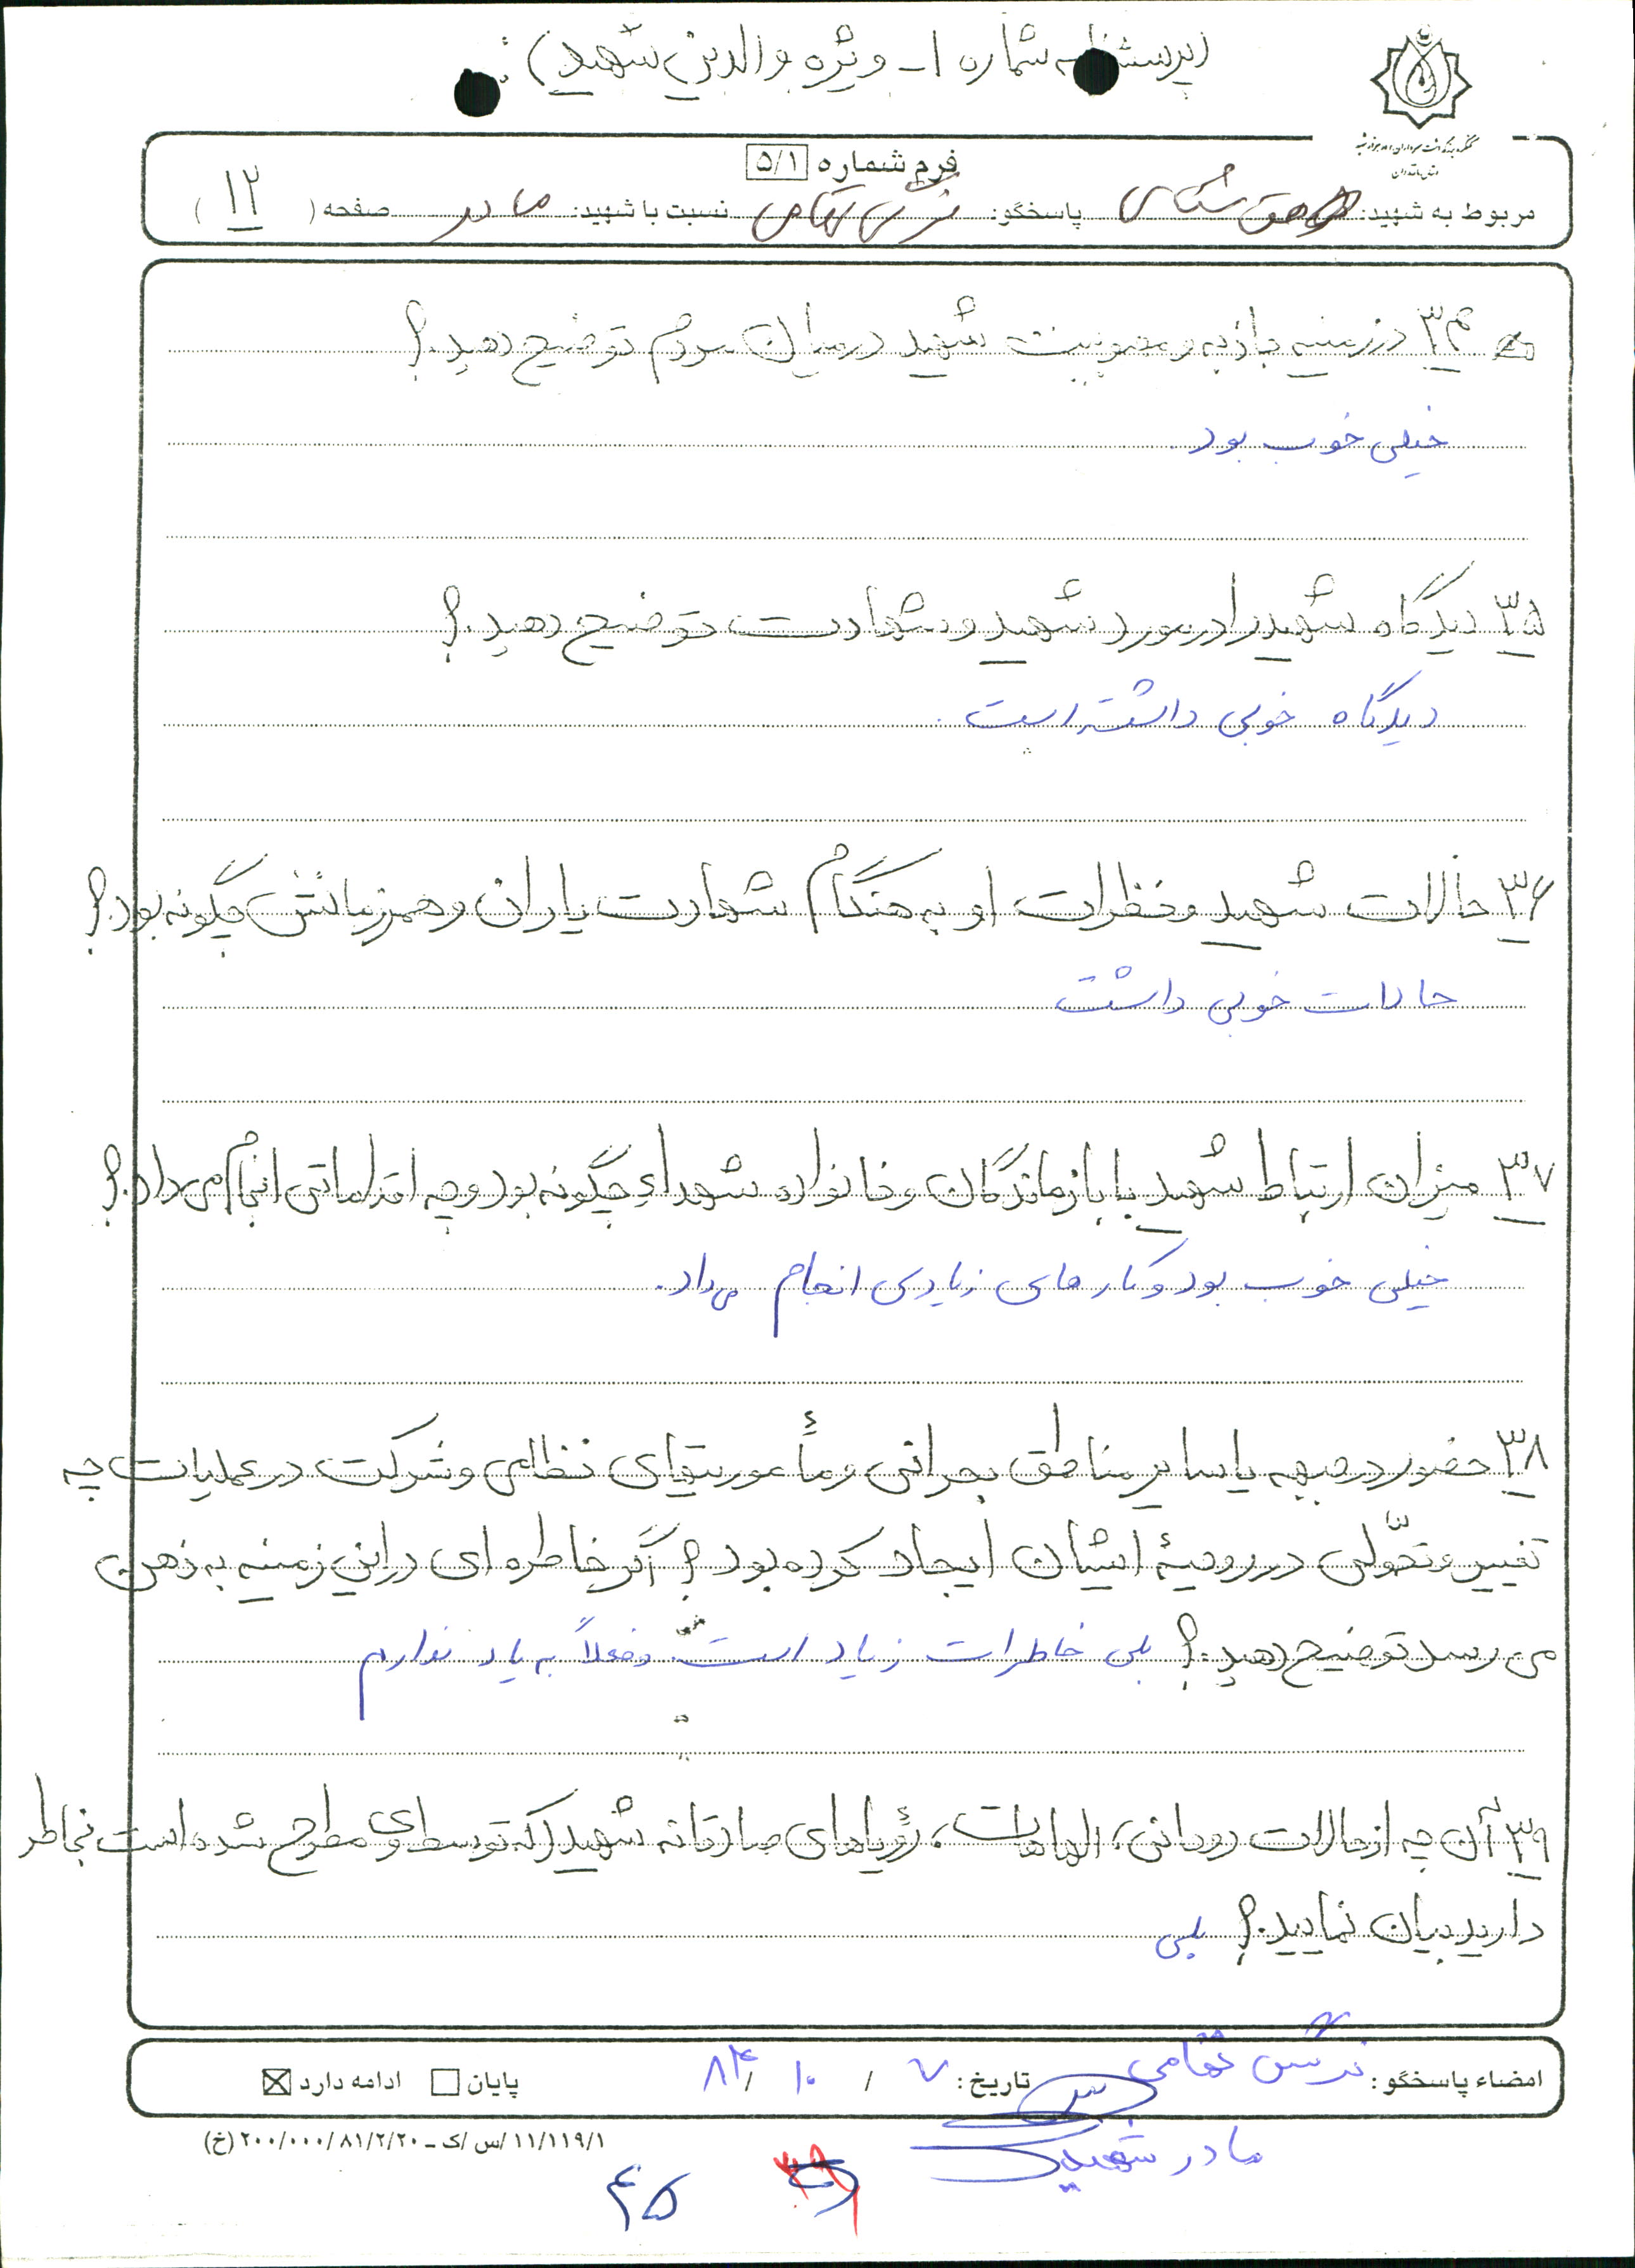 (پرسشنامه شماره ۱- ویژه والدین شهید):
فرم شماره ۵/۱
مربوط به شهید: پاسخگو: نسبت با شهید: مادر صفحه (۱۲)
۳۴ در زمینه جاذبه و محبوبیت شهید در میان مردم توضیح دهید.؟
خیلی خوب بود.
۳۵ دیدگاه شهید را در مورد شهید و شهادت توضیح دهید.؟
دیدگاه خوبی داشته است.
۳۶ حالات شهید و نظرات او به هنگام شهادت یاران و همرزمانش چگونه بود.؟
حالات خوبی داشت
۳۷ میزان ارتباط شهید با بازماندگان و خانواده شهداء چگونه بود و چه اقداماتی انجام می داد.؟
خیلی خوب بود و کارهای زیادی انجام می داد.
۳۸ حضور در جبهه یا سایر مناطق بحرانی و مأموریتهای نظامی و شرکت در عملیات چه
تغییر و تحوّلی در روحیهٔ ایشان ایجاد کرده بود؟ اگر خاطره ای در این زمینه به ذهن
می رسد توضیح دهید.؟ بلی خاطرات زیاد است و فعلاً به یاد ندارم
۳۹ آن چه از حالات روحانی، الهامات، رؤیاهای صادقانه شهید را که توسط وی مطرح شده است بخاطر
دارید بیان نمایید.؟ بلی
امضاء پاسخگو: نرگس تاریخ: ۷ / ۱۰ / ۸۴ پایان ادامه دارد
مادر شهید
۱۱/۱۱۹/۱/س/ک - ۲۰۰/۰۰۰/۸۱/۲/۲۰ (خ)
۴۵